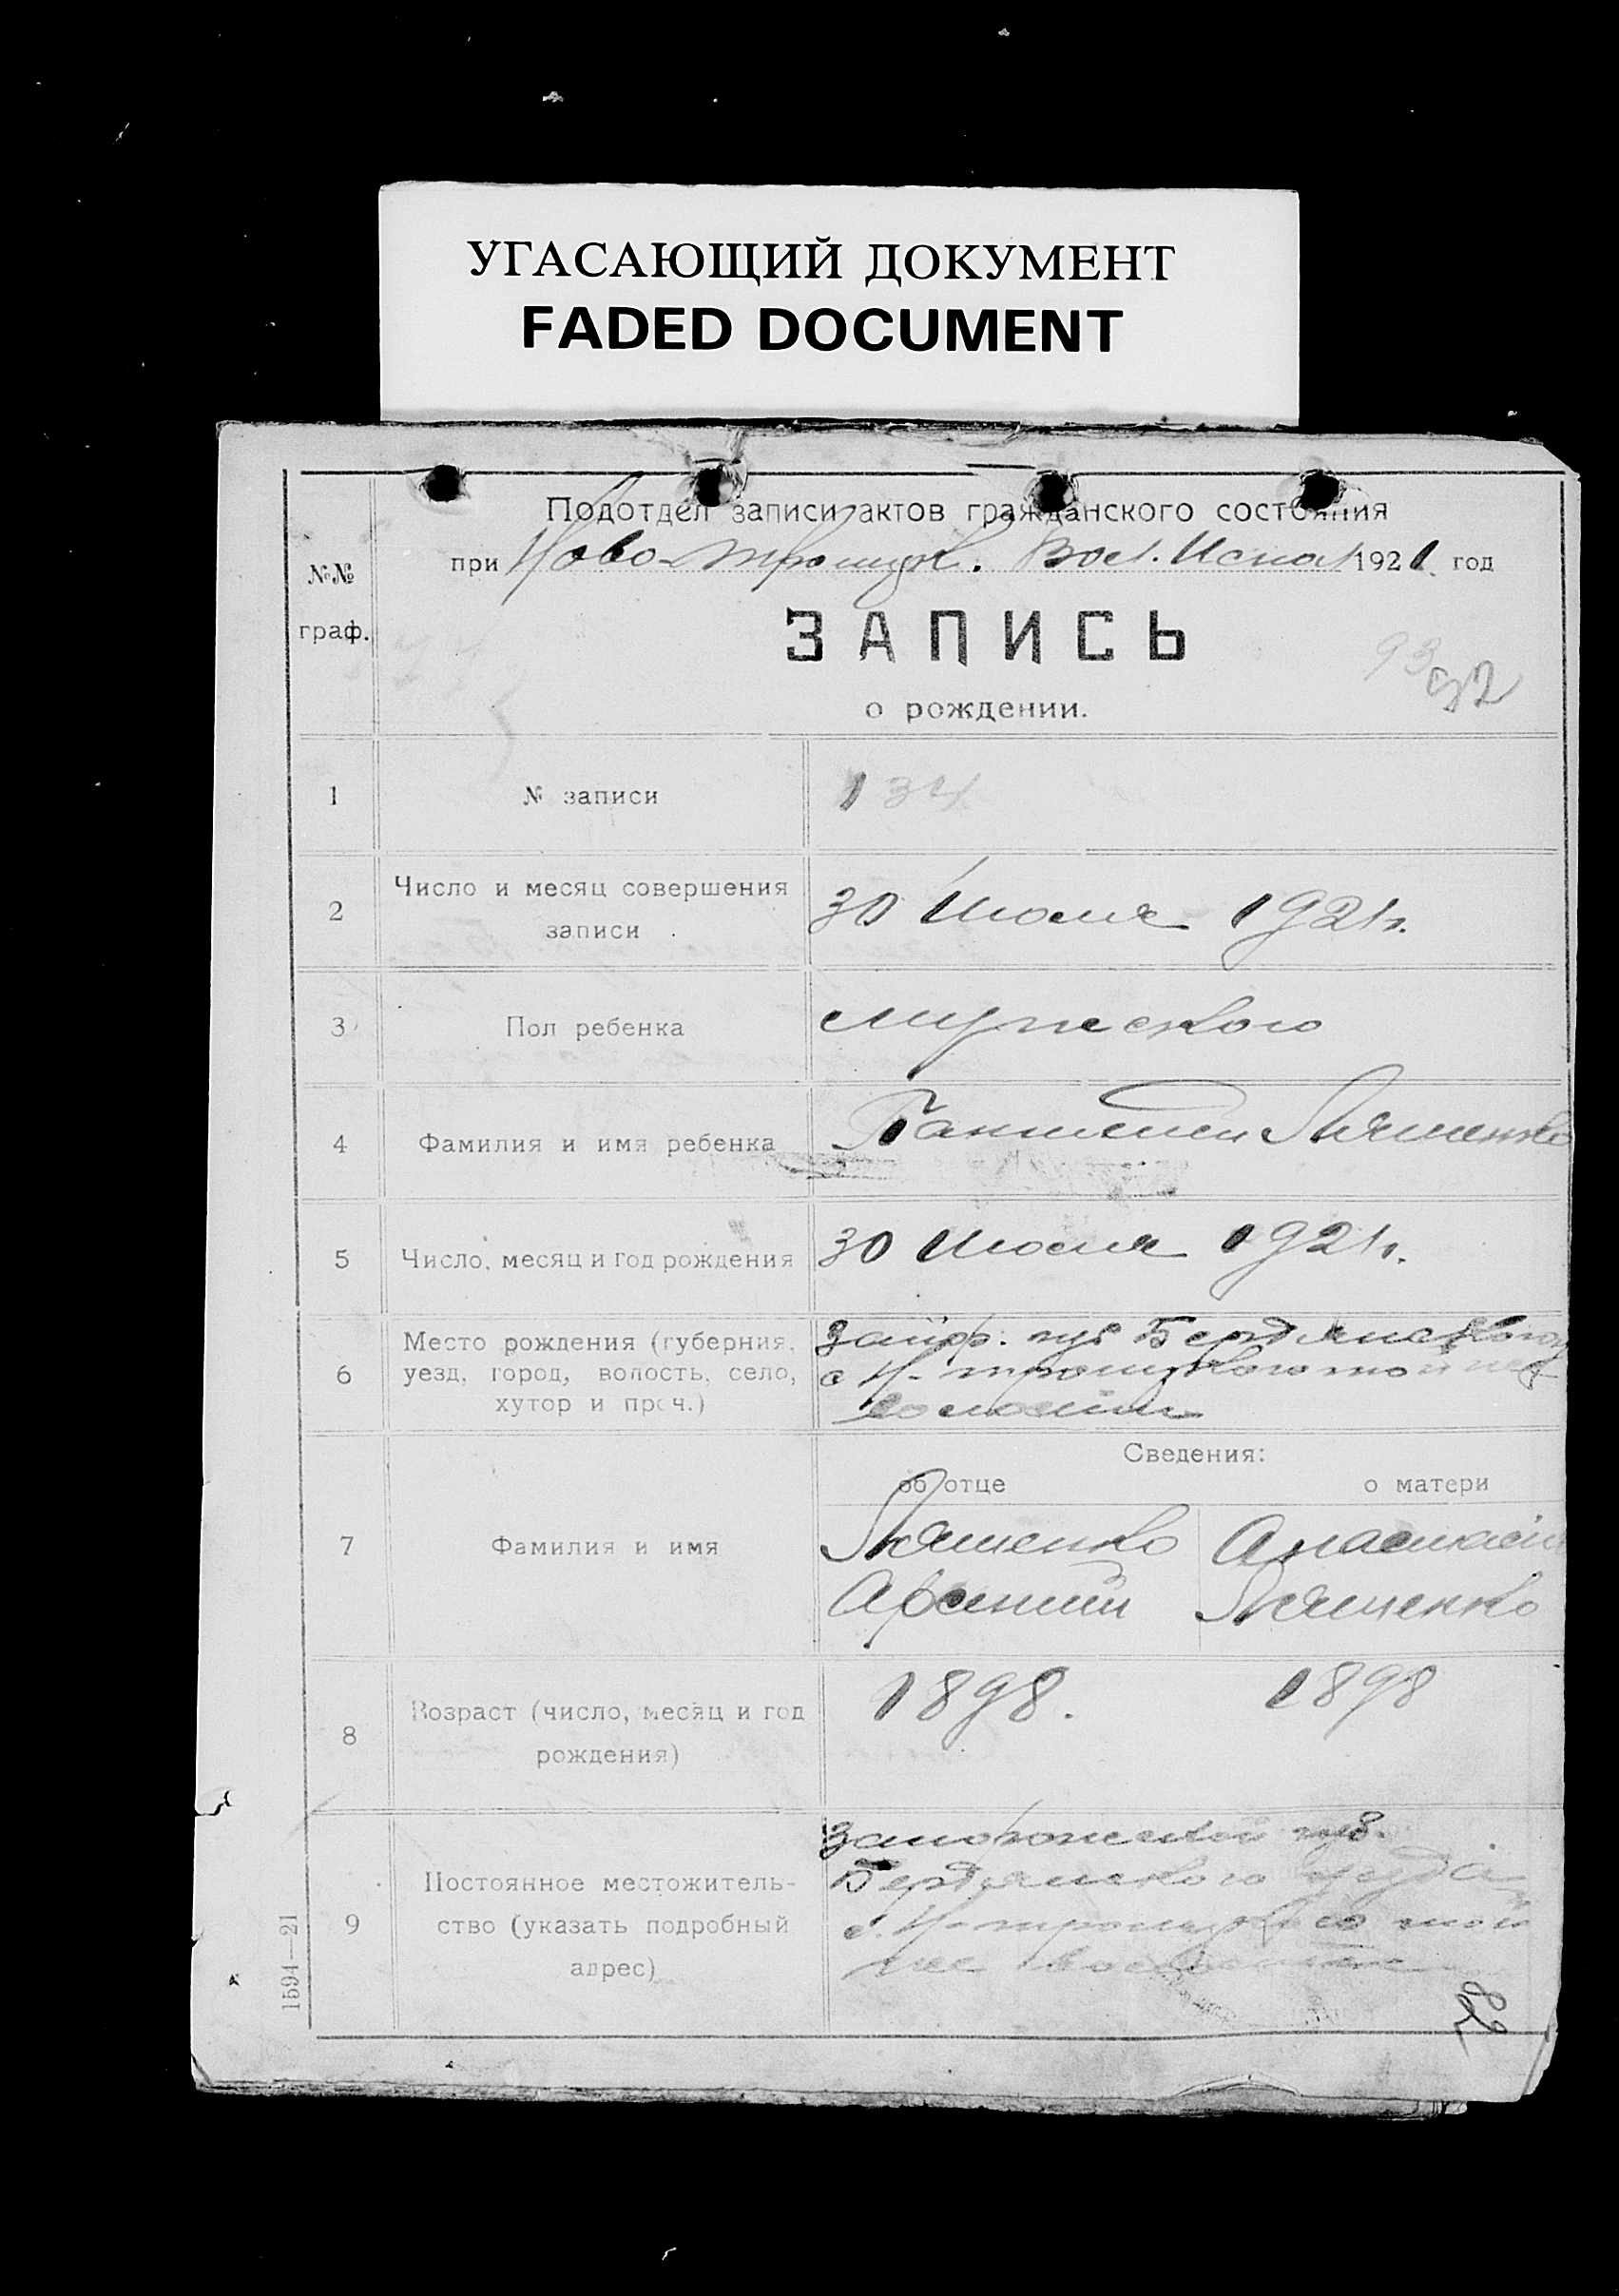 УГАСАЮЩИЙ ДОКУМЕНТ
FADED DOCUMENT
Подотдел записи актов гражданского состояния
№№
граф.
при Ново-Троицк. Вол. Испол 1921 год
ЗАПИСЬ
93 92
о рождении.
1 № записи 134
2 Число и месяц совершения
записи
30 Июля 1921 г.
3 Пол ребенка мужского
4 Фамилия и имя ребенка Пантелей Ляшенко
5 Число, месяц и год рождения 30 Июля 1921 г.
6 Место рождения (губерния,
уезд, город, волость, село,
хутор и проч.)
Запор. губ Бердянского у
с Н-троицкого той же
волости
Сведения:
об отце о матери
7 Фамилия и имя
Ляшенко Анастасія
Арсений Ляшенко
8 Возраст (число, месяц и год
рождения)
1898. 1898
9 Постоянное местожитель-
ство (указать подробный
адрес)
Запорожской губ.
Бердянского уезда
с. Н-троицкого той
же волости
1594—21